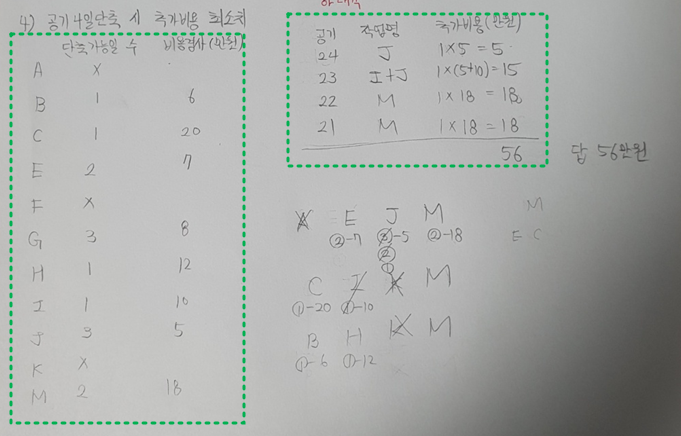 4) 공기 4일단축 시 추가비용 최소치
단축가능일 수 비용경사(만원)
A X
B 1 6
C 1 20
E 2 7
F X
G 3 8
H 1 12
I 1 10
J 3 5
K X
M 2 18
공기 작업명 추가비용(만원)
24 J 1×5 = 5
23 I+J 1×(5+10)=15
22 M 1×18 = 18
21 M 1×18 = 18
56
답 56만원
A E J M
②-7 ③-5 ②-18
②
①
C I K M
①-20 ①-10
B H K M
①-6 ①-12
M
E C